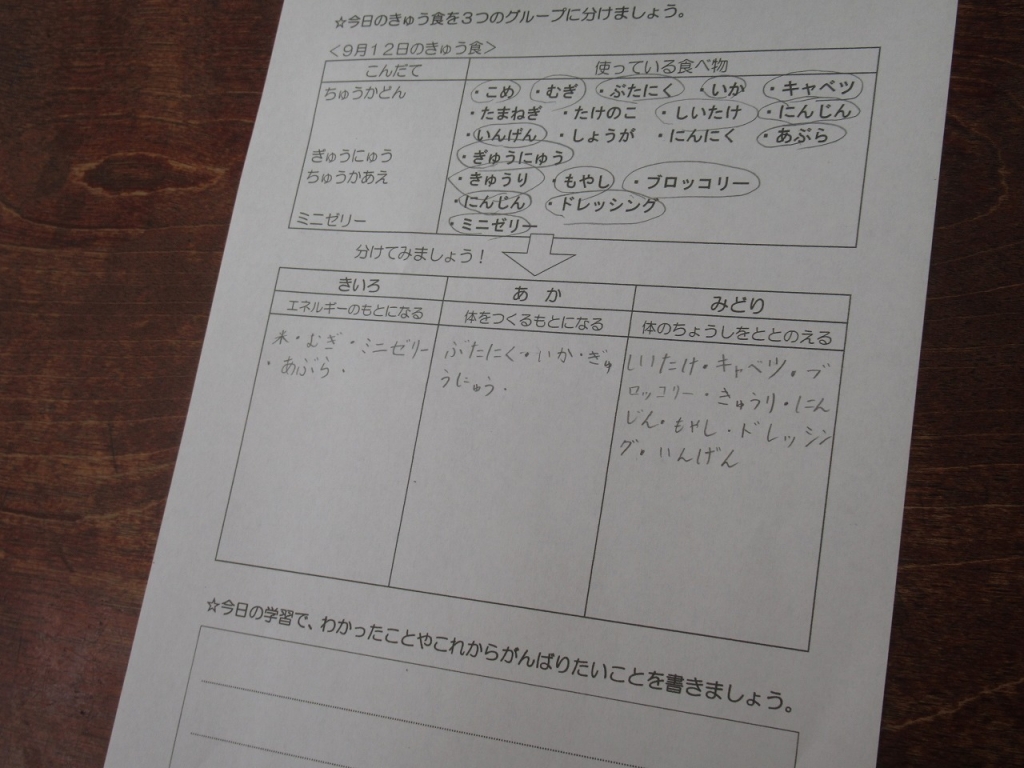 ☆今日のきゅう食を3つのグループに分けましょう。
<9月12日のきゅう食>
こんだて 使っている食べ物
ちゅうかどん ・こめ ・むぎ ・ぶたにく ・いか ・キャベツ
・たまねぎ ・たけのこ ・しいたけ ・にんじん
・いんげん ・しょうが ・にんにく ・あぶら
ぎゅうにゅう ・ぎゅうにゅう
ちゅうかあえ ・きゅうり ・もやし ・ブロッコリー
・にんじん ・ドレッシング
ミニゼリー ・ミニゼリー
分けてみましょう!
きいろ あか みどり
エネルギーのもとになる 体をつくるもとになる 体のちょうしをととのえる
米・むぎ・ミニゼリー
・あぶら・
ぶたにく・いか・ぎゅ
うにゅう・
しいたけ・キャベツ・ブ
ロッコリー・きゅうり・にん
じん・もやし・ドレッシン
グ・いんげん
☆今日の学習で、わかったことやこれからがんばりたいことを書きましょう。